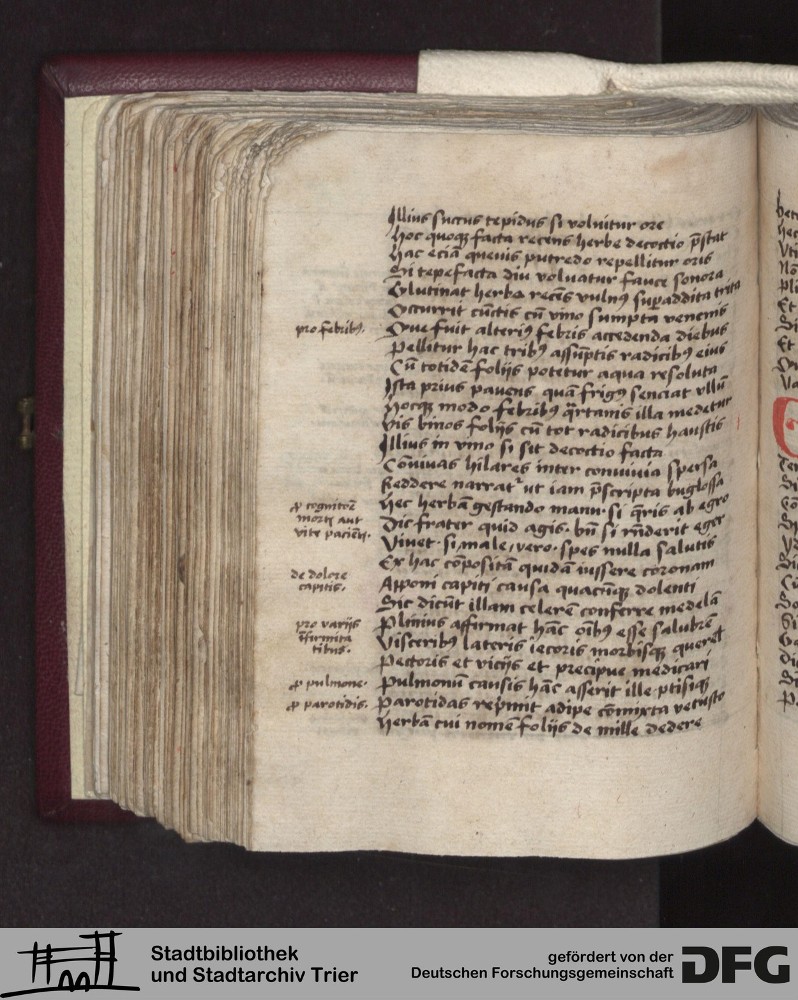 Illius succus tepidus si voluitur ore
hoc quoqꝫ facta recens herbe decoctio p̄stat
hac eciā quevis putredo repellitur oris
Si tepefacta diu voluatur fauce sonora
Glutinat herba recēs vulnꝰ supaddita trita
Occurrit cūctis cū vino sumpta venenis
pro febribꝰ.
Que fuit alteriꝰ febris accedenda diebus
Pellitur hac tribꝰ assūptis radicibꝰ eius
Cū totidē folijs potetur aqua resoluta
Ista prius pavens quā frigꝰ senciat vllū
hocqꝫ modo febribꝰ q̄rtanis illa medetur
Vis binos folijs cū tot radicibus haustis
Illius in vino si sit decoctio facta
Cōvivas hilares inter convivia spersa
Reddere narratᷣ ut iam p̄scripta buglossa
ꝓ cognitōē
morti aut
vite paciēn.
Hec herbā gestando manu. si q̄ris ab egro
Dic frater quid agis. bn̄ si rn̄derit eger
Vivet. si male, vero. spes nulla salutis
Ex hac cōpositā quidā iussere coronam
de dolore
capitis.
Apponi capiti causa quacūqꝫ dolenti
Sic dicūt illam celerē conferre medelā
pro varijs
īfirmita
tibus.
Plinius affirmat hāc oībꝰ esse salubrē
Visceribꝰ lateris iecoris morbisqꝫ querel
Pectoris et vicijs et precipue medicari
ꝓ pulmone.
Pulmonū causis hāc asserit ille ptisiqꝫ
ꝓ parotidis.
Parotidas rep̄mit adipe cōmixta vetusto
Herbā cui nomē folijs de mille dedere
Stadtbibliothek
und Stadtarchiv Trier
gefördert von der
Deutschen Forschungsgemeinschaft
DFG